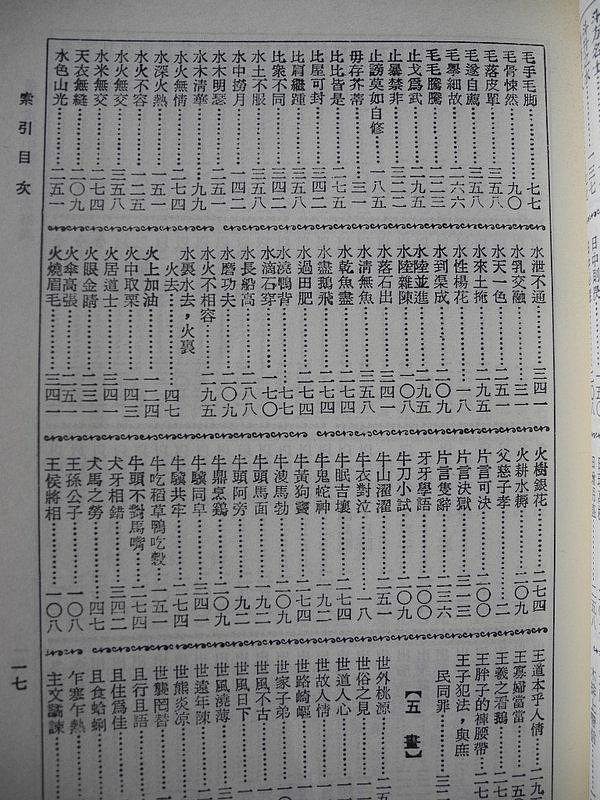 索引目次
毛手毛脚………七七
毛骨悚然………九〇
毛落皮單………三五八
毛遂自薦………三五八
毛舉細故………二六六
毛毛騰騰………二二三
止戈為武………二九五
止暴禁非………三二二
止謗莫如自修………一八五
毋存芥蒂………三一
比比皆是………二七五
比屋可封………三四二
比肩繼踵………三五八
比衆不同………三四二
水土不服………三五八
水中撈月………一四二
水木明瑟………二五一
水木清華………九九
水火無情………二七四
水深火熱………一五一
水火不容………一二五
水火無交………三五八
水米無交………二七四
天衣無縫………二〇九
水色山光………二五一
水泄不通………三四一
水乳交融………三一
水天一色………二五一
水來土掩………二九五
水性楊花………一八
水到渠成………二〇九
水陸並進………二九五
水陸雜陳………一〇八
水落石出
水清無魚………三五八
水乾魚盡………二七四
水盡鵝飛………二七四
水過田肥………二七四
水澆鴨背………七七
水滴石穿………一七〇
水長船高………二八八
水磨功夫………二〇九
水火不相容………二九五
水裏水去，火裏
火去………四七
火上加油………一二四
火中取栗………一四三
火居道士………三四一
火眼金睛………二三一
火傘高張………二五一
火燒眉毛………三四一
火樹銀花………二七四
火耕水耨………二〇九
父慈子孝………二
片言可決………二〇〇
片言決獄………三一三
片言隻辭………二三六
牙牙學語………二〇〇
牛刀小試………二〇九
牛山濯濯………二五一
牛衣對泣………一八
牛眠吉壤………二七四
牛鬼蛇神………一九二
牛黃狗寶………二五一
牛溲馬勃………二〇九
牛頭馬面………一九二
牛頭阿旁………一九二
牛鼎烹鷄………二〇九
牛驥同皁………三四一
牛驥共牢………二七四
牛吃稻草鴨吃穀………一五一
牛頭不對馬嘴………二七四
犬牙相錯………三四二
犬馬之勞………四七
王孫公子………一〇八
王侯將相………一〇八
王道本乎人情………二九
王寡婦當當………一五
王羲之看鵝………二七
王胖子的褲腰帶
王子犯法，與庶
民同罪………三二
【五畫】
世外桃源
世俗之見
世道人心
世故人情
世路崎嶇
世家子弟
世風不古
世風日下
世風澆薄
世遠年陳
世態炎凉
世襲罔替
且行且語
且住為佳
且食蛤蜊
乍寒乍熱
主文譎諫
一七